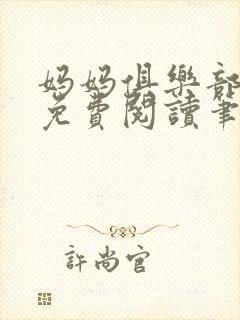 媽媽俱樂部
免費閱讀筆
許尚官